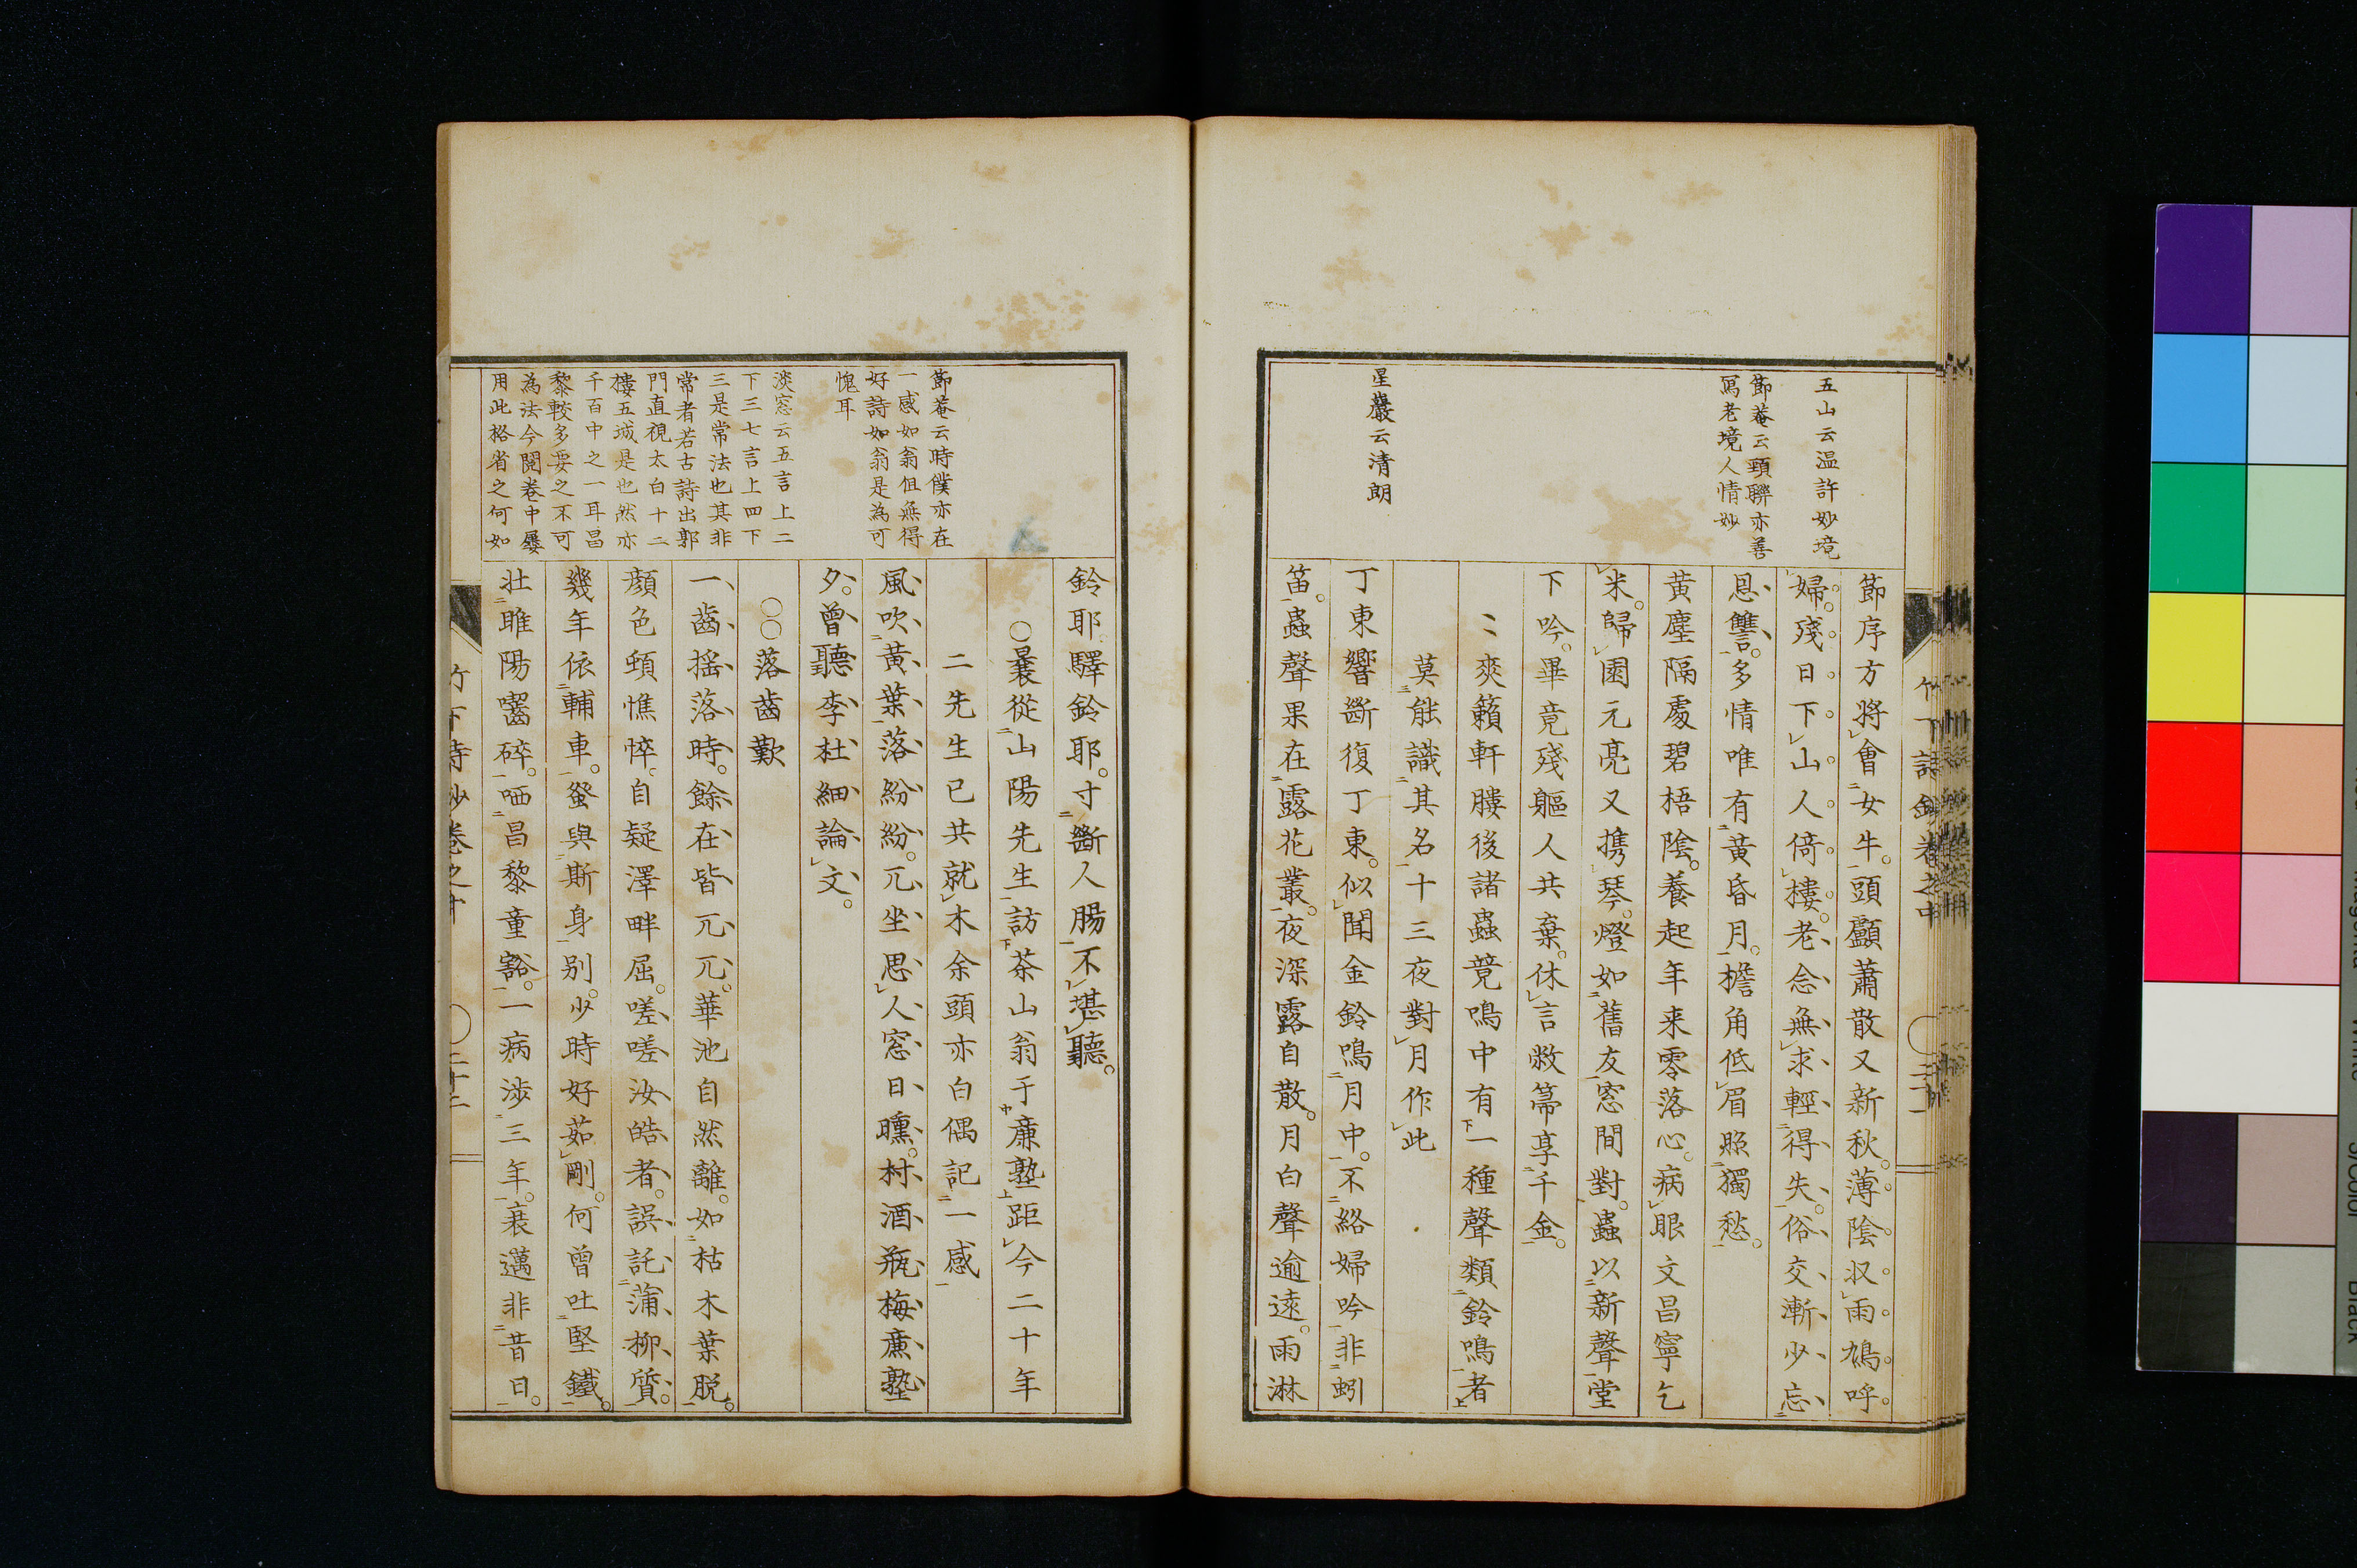 五山云温許妙境
節菴云頸聯亦善
寫老境人情妙
星巖云清朗
節序方將會女牛。頭顱蕭散又新秋。薄陰収雨鳩呼
婦。殘日下山人倚樓。老念無求輕得失。俗交漸少忘
恩讐。多情唯有黃昏月。檐角低眉照獨愁。
黃塵隔處碧梧陰。養起年来零落心。病眼文昌寧乞
米。歸園元亮又携琴。燈如舊友窓間對。蟲以新聲堂
下吟。畢竟殘軀人共棄。休言敝帚享千金。
爽籟軒牅後諸蟲競鳴中有一種聲類鈴鳴者
莫能識其名十三夜對月作此
丁東響斷復丁東。似聞金鈴鳴月中。不絡婦吟非蚓
笛。蟲聲果在露花叢。夜深露自散。月白聲逾遠。雨淋
竹下詩鈔卷之中
二十一
節菴云時僕亦在
一感如翁但無得
好詩如翁是為可
愧耳
淡窓云五言上二
下三七言上四下
三是常法也其非
常者若古詩出郭
門直視太白十二
樓五城是也然亦
千百中之一耳昌
黎較多要之不可
為法今閲卷中屢
用此格省之何如
鈴耶驛鈴耶。寸斷人腸不堪聽。
○曩從山陽先生訪茶山翁于廉塾距今二十年
二先生已共就木余頭亦白偶記一感
風吹黃葉落紛紛。兀坐思人窓日曛。村酒瓶梅廉塾
夕。曾聽李杜細論文。
○○落齒歎
一齒搖落時。餘在皆兀兀。華池自然離。如枯木葉脱。
顏色顇憔悴。自疑澤畔屈。嗟嗟汝皓者。誤託蒲柳質。
幾年依輔車。発與斯身別。少時好茹剛。何曾吐堅鐵。
壮睢陽嚙碎。哂昌黎童豁。一病渉三年。衰邁非昔日。
竹下詩鈔卷之中
二十二